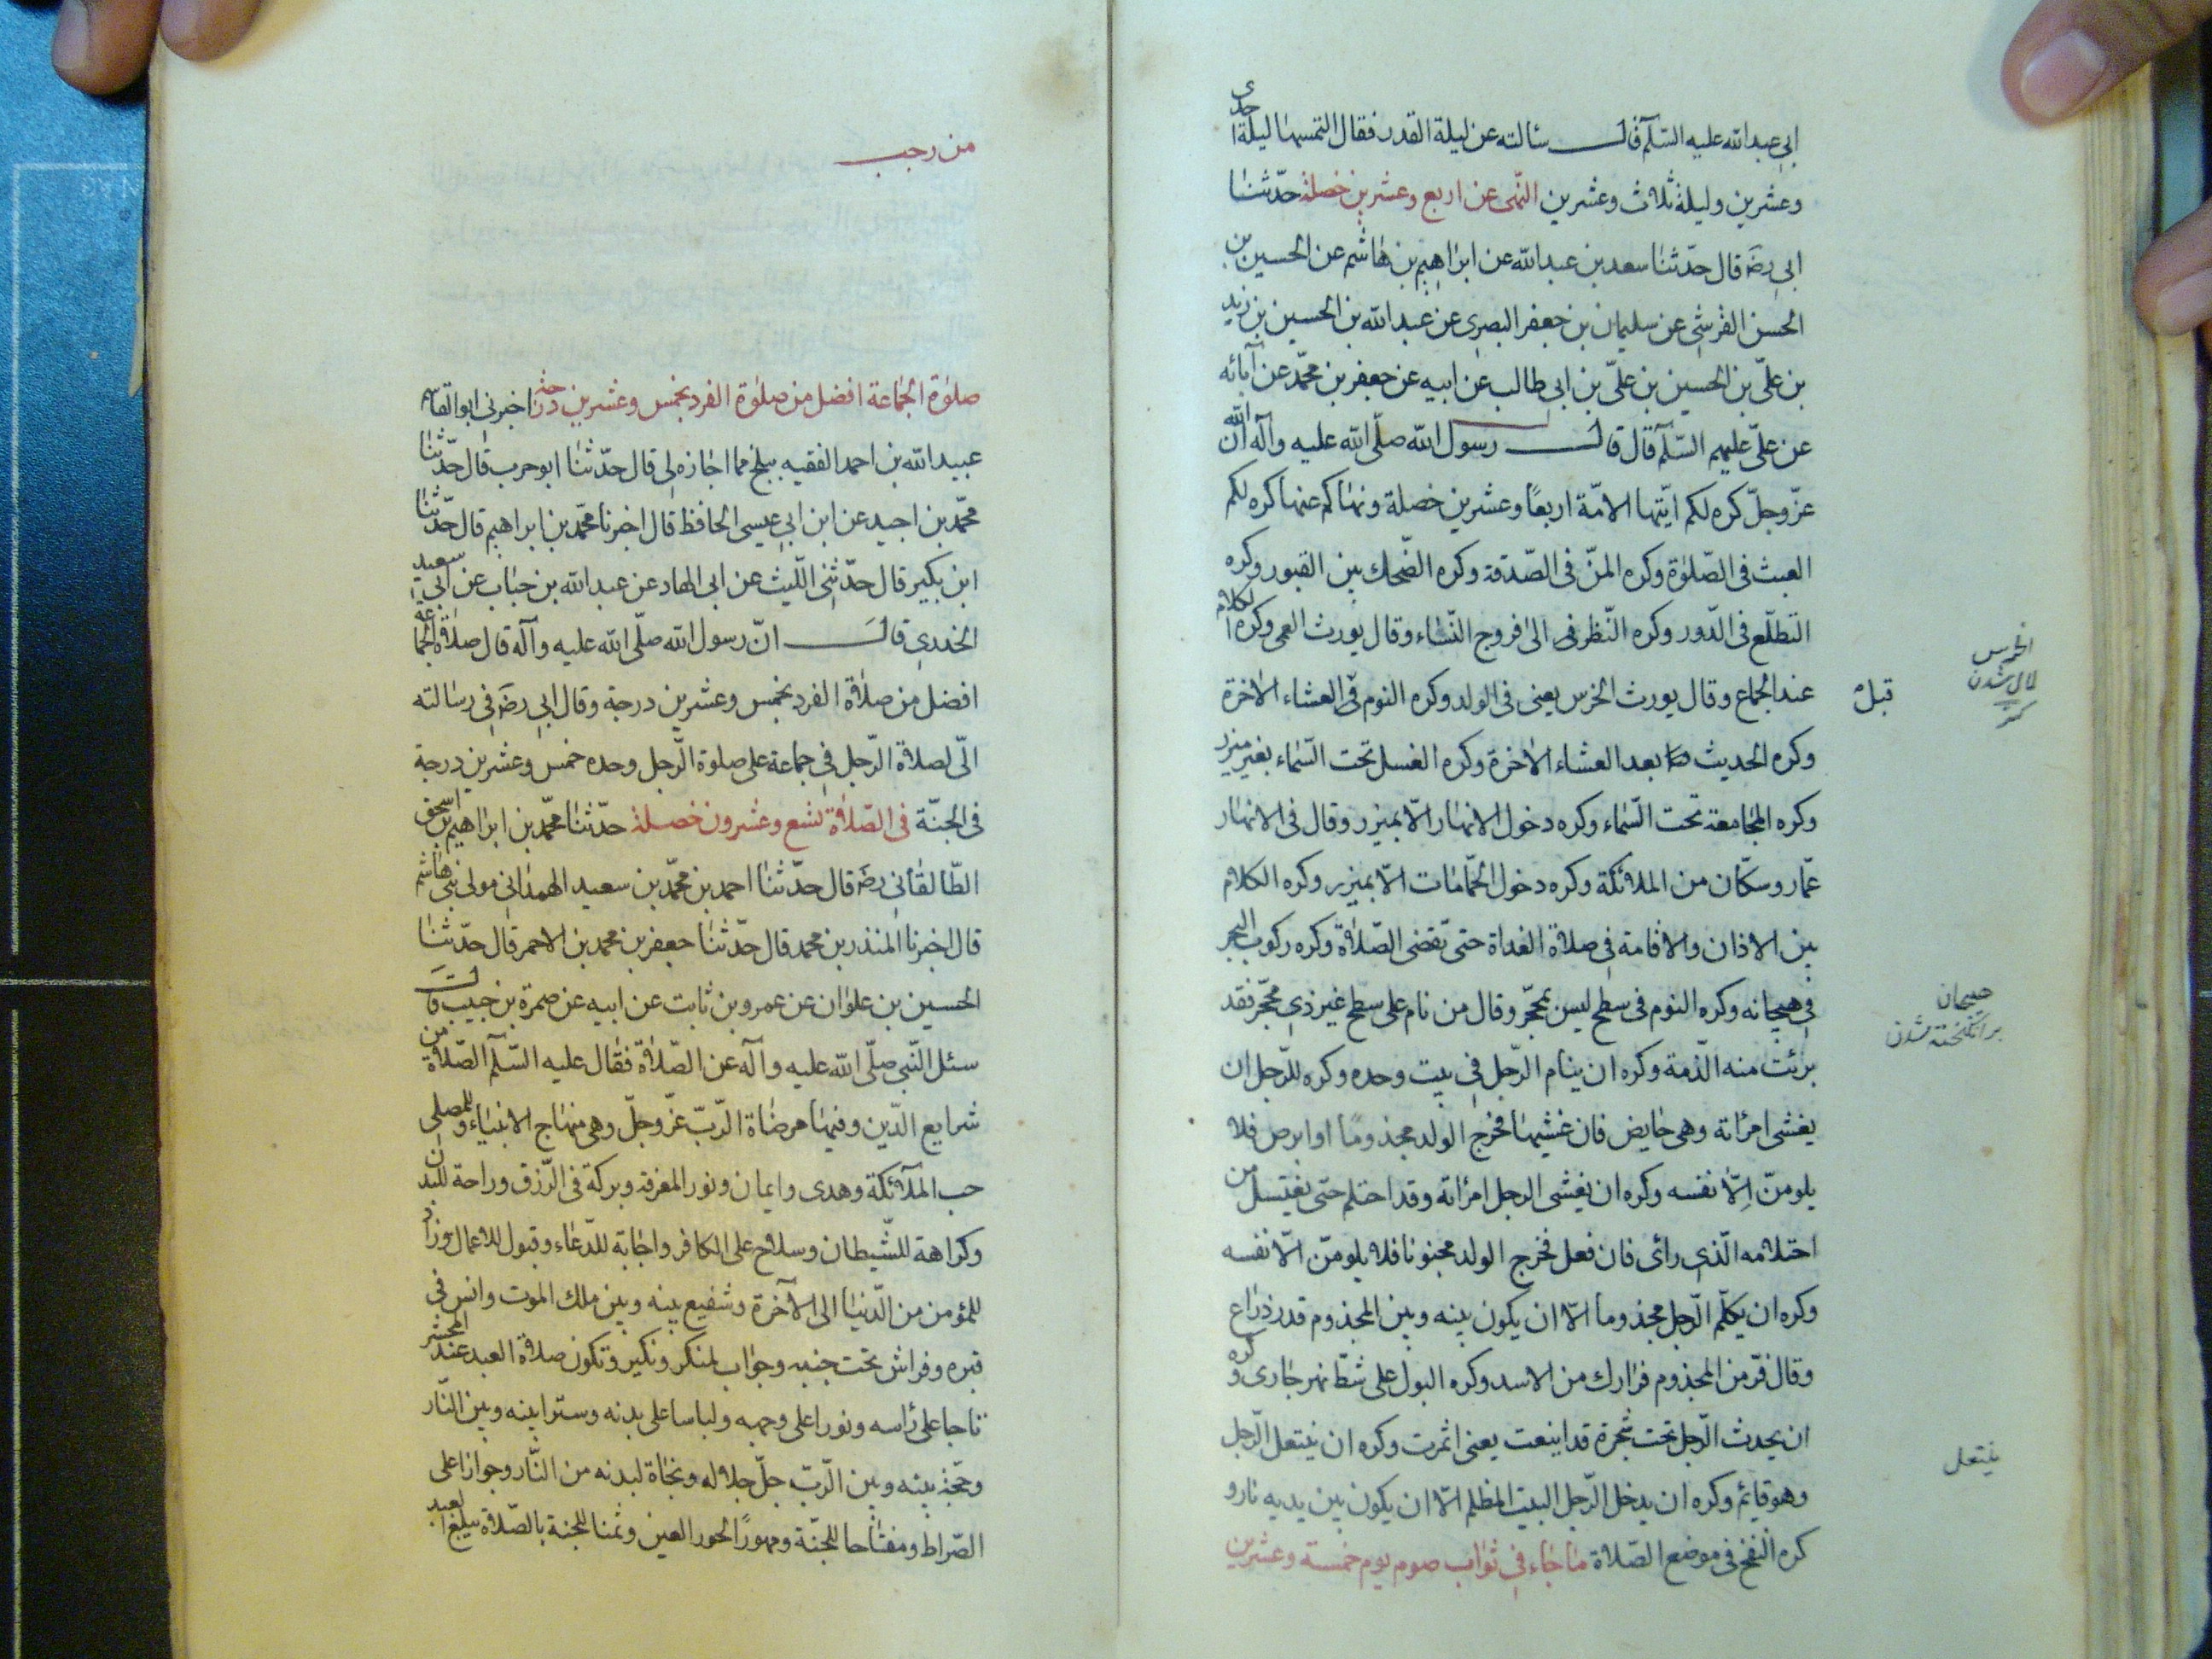 ابى عبد الله عليه السّلم قال سئالته عن ليلة القدر فقال التمسها ليلة احدى
وعشرين وليلة ثلاث وعشرين النّهى عن اربع وعشرين خصلة حدّثنا
ابى رضَ قال حدّثنا سعد بن عبد الله عن ابراهيم بن هاشم عن الحسين بن
الحسن القرشى عن سليمان بن جعفر البصرى عن عبد الله بن الحسين بن زيد
بن علىّ بن الحسين بن علىّ بن ابى طالب عن ابيه عن جعفر بن محمّد عن آبائه
عن علىّ عليهم السّلم قال قال رسول الله صلّى الله عليه وآله انّ الله
عزّ وجلّ كره لكم ايّتها الامّة اربعًا وعشرين خصلة ونهاكم عنها كره لكم
العبث فى الصّلوٰة وكره المنّ فى الصّدقة وكره الضّحك بين القبور وكره
التطلّع فى الدّور وكره النّظر فى الى فروج النّساء وقال يورث العمى وكره الكلام
عند الجماع وقال يورث الخرس يعنى فى الولد وكره النوم فى العشاء الاخرة
قبل
الخرس
لال شدن
كنز
وكره الحديث بعد العشاء الاخرة وكره الغسل تحت السّماء بغير ميزر
وكره المجامعة تحت السّماء وكره دخول الانهار الّا بميزر وقال فى الانهار
عمّار وسكّان من الملائكة وكره دخول الحمّامات الّا بميزر وكره الكلام
بين الاذان والاقامة فى صلاة الغداة حتى تقضى الصّلاة وكره ركوب البحر
فى هيجانه وكره النوم فى سطح ليس بمحجّر وقال من نام على سطح غير ذى محجّر فقد
هيجان
برانگيخته شدن
برئت منه الذّمة وكره ان ينام الرّجل فى بيت وحده وكره للرّجل ان
يغشى امرئاته وهى حايض فان غشيها فخرج الولد مجذومًا او ابرص فلا
يلومنّ اِلّا نفسه وكره ان يغشى الرجل امرئاته وقد احتلم حتّى يغتسل من
احتلامه الّذى رأى فان فعل فخرج الولد مجنونا فلا يلومنّ الّا نفسه
وكره ان يكلّم الرّجل مجذوما الّا ان يكون بينه وبين المجذوم قدر ذراع
وقال فرّ من المجذوم فرارك من الاسد وكره البول على شطّ نهر جارى وكره
ان يحدث الرّجل تحت شجرة قد اينعت يعنى اثمرت وكره ان ينتعل الرّجل
ينتعل
وهو قايم وكره ان يدخل الرّجل البيت المظلم الّا ان يكون بين يديه نار و
كره النّفخ فى موضع الصّلاة ما جاء فى ثواب صوم يوم خمسة وعشرين
من رجب
صلوٰة الجماعة افضل من صلوٰة الفرد بخمس وعشرين درجة اخبرنى ابو القاسم
عبيد الله بن احمد الفقيه ببلخ مما اجازه لى قال حدّثنا ابو حرب قال حدّثنا
محمّد بن احيد عن ابن ابى عيسى الحافظ قال اخبرنا محمّد بن ابراهيم قال حدّثنا
ابن بكير قال حدّثنى اللّيث عن ابى الهاد عن عبد الله بن خباب عن ابى سعيد
الخدرى قال انّ رسول الله صلّى الله عليه وآله قال صلاة الجماعة
افضل من صلاة الفرد بخمس وعشرين درجة وقال ابى رضَ فى رسالته
الىّ لصلاة الرّجل فى جماعة على صلوة الرّجل وحده خمس وعشرين درجة
فى الجنّة فى الصّلاة تسع وعشرون خصلة حدّثنا محمّد بن ابراهيم بن اسحق
الطّالقانى رضَ قال حدّثنا احمد بن محمّد بن سعيد الهمدانى مولى بنى هاشم
قال اخبرنا المنذر بن محمد قال حدّثنا جعفر بن محمد بن الاحمر قال حدّثنا
الحسين بن علوان عن عمرو بن ثابت عن ابيه عن ضمرة بن حبيب قال
سئل النّبى صلّى الله عليه وآله عن الصّلاة فقال عليه السّلم الصّلاة من
شرايع الدّين وفيها مرضاة الرّبّ عزّ وجلّ وهى منهاج الانبياء وللمصلى
حب الملآئكة وهدى وايمان ونور المعرفة وبركة فى الرّزق وراحة للبدن
وكراهة للشّيطان وسلاح على الكافر واجابة للدّعاء وقبول للاعمال وزاد
للمؤمن من الدّنيا الى الآخرة وشفيع بينه وبين ملك الموت وانس فى
قبره وفراش تحت جنبه وجواب لمنكر ونكير وتكون صلاة العبد عند المحشر
تاجا على رٔاسه ونورا على وجهه ولباسا على بدنه وسترا بينه وبين النّار
وحجّة بينه وبين الرّبّ جلّ جلاله ونجاة لبدنه من النّار وجوازا على
الصّراط ومفتاحا للجنّة ومهورًا لحور العين وثمنا للجنة بالصّلاة يبلغ العبد